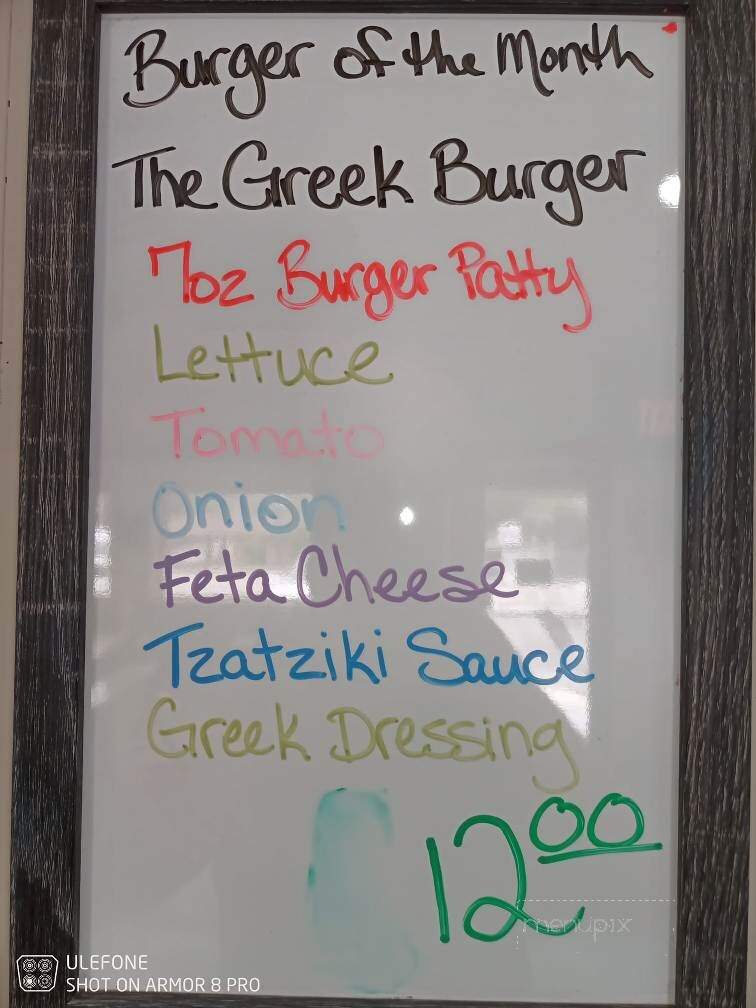 Burger of the Month
The Greek Burger
7oz Burger Patty
Lettuce
Tomato
Onion
Feta Cheese
Tzatziki Sauce
Greek Dressing
12.00
menupix
ULEFONE
SHOT ON ARMOR 8 PRO